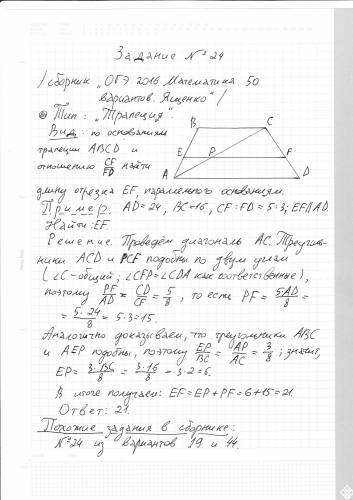 Задание №24
/сборник „ОГЭ 2016 Математика 50
вариантов. Ященко"/
Тип: „Трапеция".
Вид: по основаниям
трапеции ABCD и
отношению CF/FD найти
B C
E P F
A D
длину отрезка EF, параллельного основаниям.
Пример. AD=24, BC=16, CF:FD=5:3; EF∥AD.
Найти: EF.
Решение. Проведём диагональ AC. Треуголь-
ники ACD и PCF подобны по двум углам
(∠C-общий; ∠CFP=∠CDA как соответственные),
поэтому PF/AD = CD/CF = 5/8, то есть PF = 5AD/8 =
= 5·24/8 = 5·3=15.
Аналогично доказываем, что треугольники ABC
и AEP подобны, поэтому EP/BC = AP/AC = 3/8; значит,
EP = 3·BC/8 = 3·16/8 = 3·2=6.
В итоге получаем: EF=EP+PF=6+15=21.
Ответ: 21.
Похожие задания в сборнике:
№24 из вариантов 19 и 44.